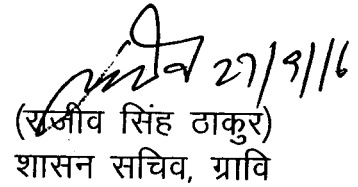 27/9/16
(राजीव सिंह ठाकुर)
शासन सचिव, ग्रावि